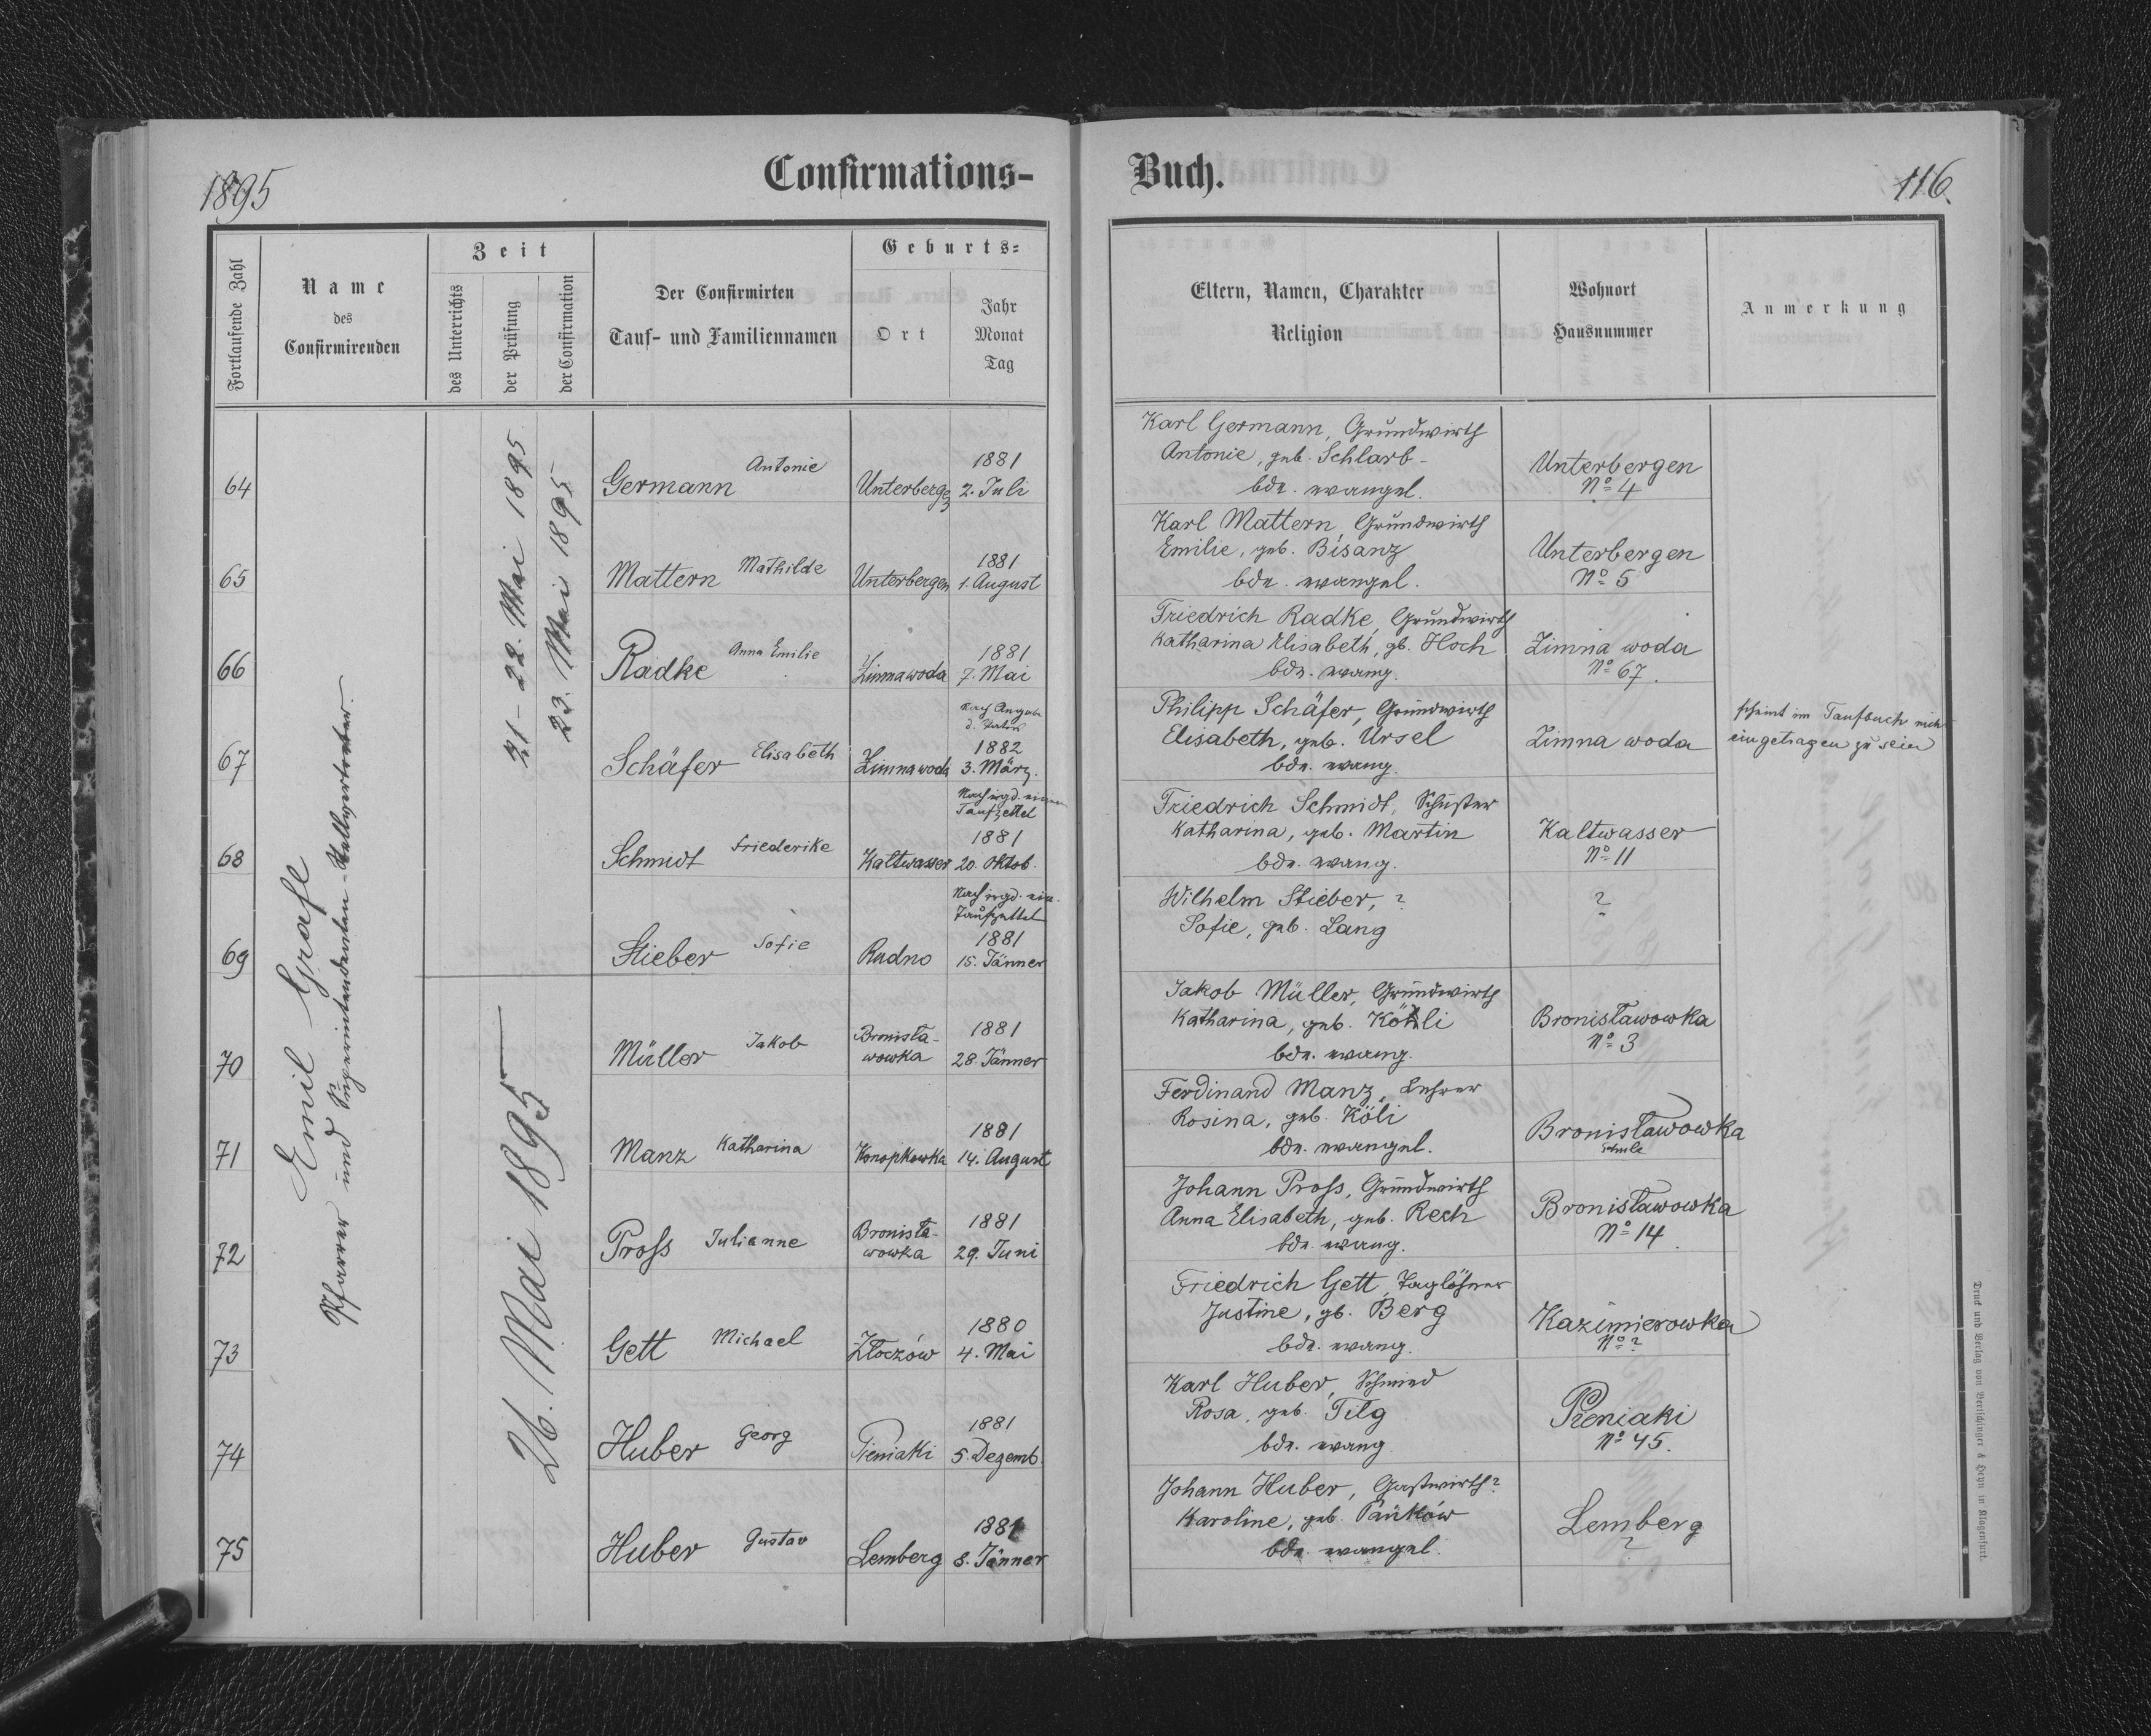 1895
Confirmations-
Buch.
116.
Fortlaufende Zahl
Name
des
Confirmirenden
Zeit
des Unterrichts
der Prüfung
der Confirmation
Der Confirmirten
Tauf- und Familiennamen
Geburts-
Ort
Jahr
Monat
Tag
Eltern, Namen, Charakter
Religion
Wohnort
Hausnummer
Anmerkung
Emil Grafl
Pfarrer und Superintendenten-Stellvertreter.
21-22. Mai 1895
23. Mai 1895
64
Germann Antonie
Unterbergen
1881
2. Juli
Karl Germann, Grundwirth
Antonie, geb. Schlarb
bde. evangel.
Unterbergen
No 4
65
Mattern Mathilde
Unterbergen
1881
1. August
Karl Mattern Grundwirth
Emilie, geb. Bisanz
bde. evangel.
Unterbergen
No 5
66
Radke Anna Emilie
Zimna woda
1881
7. Mai
Friedrich Radke, Grundwirth
Katharina Elisabeth, gb. Hoch
bde. evang.
Zimna woda
No 67.
67
Schäfer Elisabeth
Zimna woda
nach Angabe
d. Vaters
1882
3. März.
Philipp Schäfer, Grundwirth
Elisabeth, geb. Ursel
bde. evang.
Zimna woda
scheint im Taufbuch nicht
eingetragen zu sein
68
Schmidt Friederike
Kaltwasser
Taufzettel
1881
20. Oktob.
Friedrich Schmidt, Schuster
Katharina, geb. Martin
bde. evang.
Kaltwasser
No 11
69
Stieber Sofie
Rudno
Taufzettel
1881
15. Jänner
Wilhelm Stieber, ?
Sofie, geb. Lang
?
26. Mai 1895
70
Müller Jakob
Bronisła-
wowka
1881
28. Jänner
Jakob Müller, Grundwirth
Katharina, geb. Köhli
bde. evang.
Bronisławowka
No 3
71
Manz Katharina
Konopkowka
1881
14. August
Ferdinand Manz, Lehrer
Rosina, geb. Köli
bde. evangel.
Bronisławowka
Schule
72
Pross Julianne
Bronisła-
wowka
1881
29. Juni
Johann Pross, Grundwirth
Anna Elisabeth, geb. Rech
bde. evang.
Bronisławowka
No 14
73
Gett Michael
Złoczów
1880
4. Mai
Friedrich Gett, Taglöhner
Justine, gb. Berg
bde. evang.
Kazimierowka
No ?
74
Huber Georg
Pieniaki
1881
5. Dezemb.
Karl Huber, Schmied
Rosa, geb. Tilg
bde. evang.
Pieniaki
No 45.
75
Huber Gustav
Lemberg
1881
8. Jänner
Johann Huber, Gastwirth?
Karoline, geb. Pańków
bde. evangel.
Lemberg
?
Druck und Verlag von Bertschinger & Heyn in Klagenfurt.